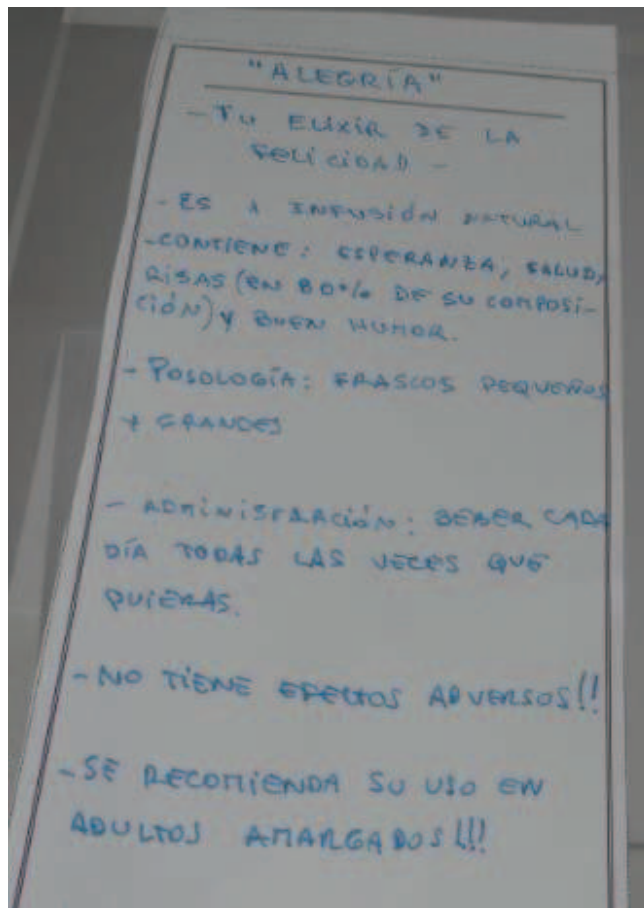 "ALEGRÍA"
- TU ELIXIR DE LA
FELICIDAD -
- ES 1 INFUSIÓN NATURAL
- CONTIENE: ESPERANZA, SALUD,
RISAS (EN 80% DE SU COMPOSI-
CIÓN) Y BUEN HUMOR.
- POSOLOGÍA: FRASCOS PEQUEÑOS
Y GRANDES
- ADMINISTRACIÓN: BEBER CADA
DÍA TODAS LAS VECES QUE
QUIERAS.
- NO TIENE EFECTOS ADVERSOS!!
- SE RECOMIENDA SU USO EN
ADULTOS AMARGADOS!!!